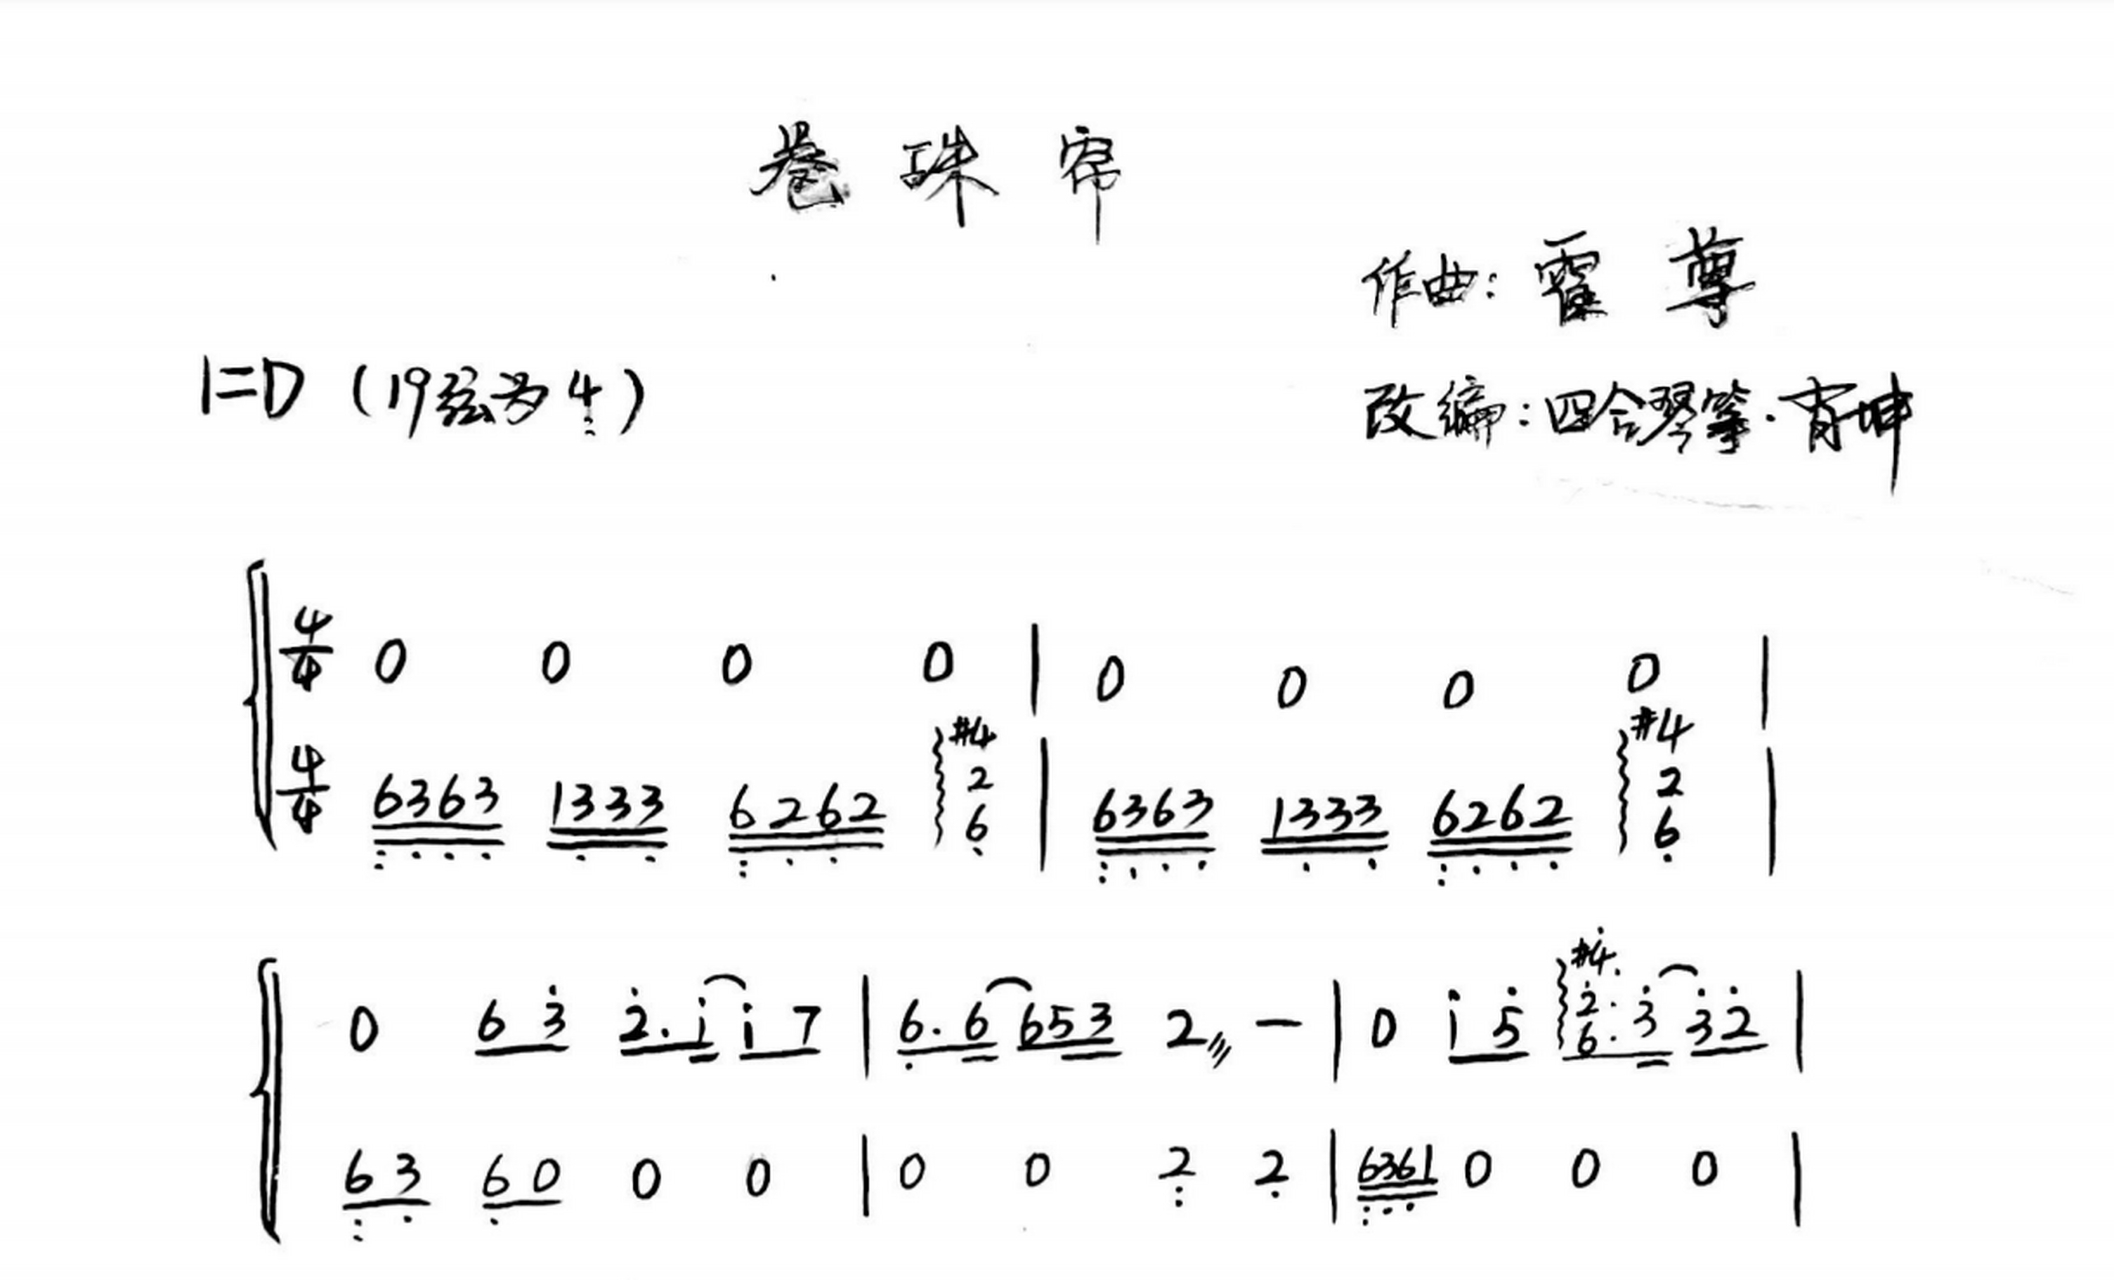 卷珠帘
作曲：霍尊
1=D（19弦为4̣̣）
改编：四合琴筝·肖坤
4/4 0 0 0 0 | 0 0 0 0 |
4/4 6363 1333 6262 #4 2 6 | 6363 1333 6262 #4 2 6 |
0 63 2.1 17 | 6.6 653 2 - | 0 15 #4. 2. 6. 3 32 |
63 60 0 0 | 0 0 2 2 | 6361 0 0 0 |